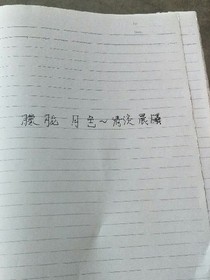 朦胧 月色~清淡晨曦